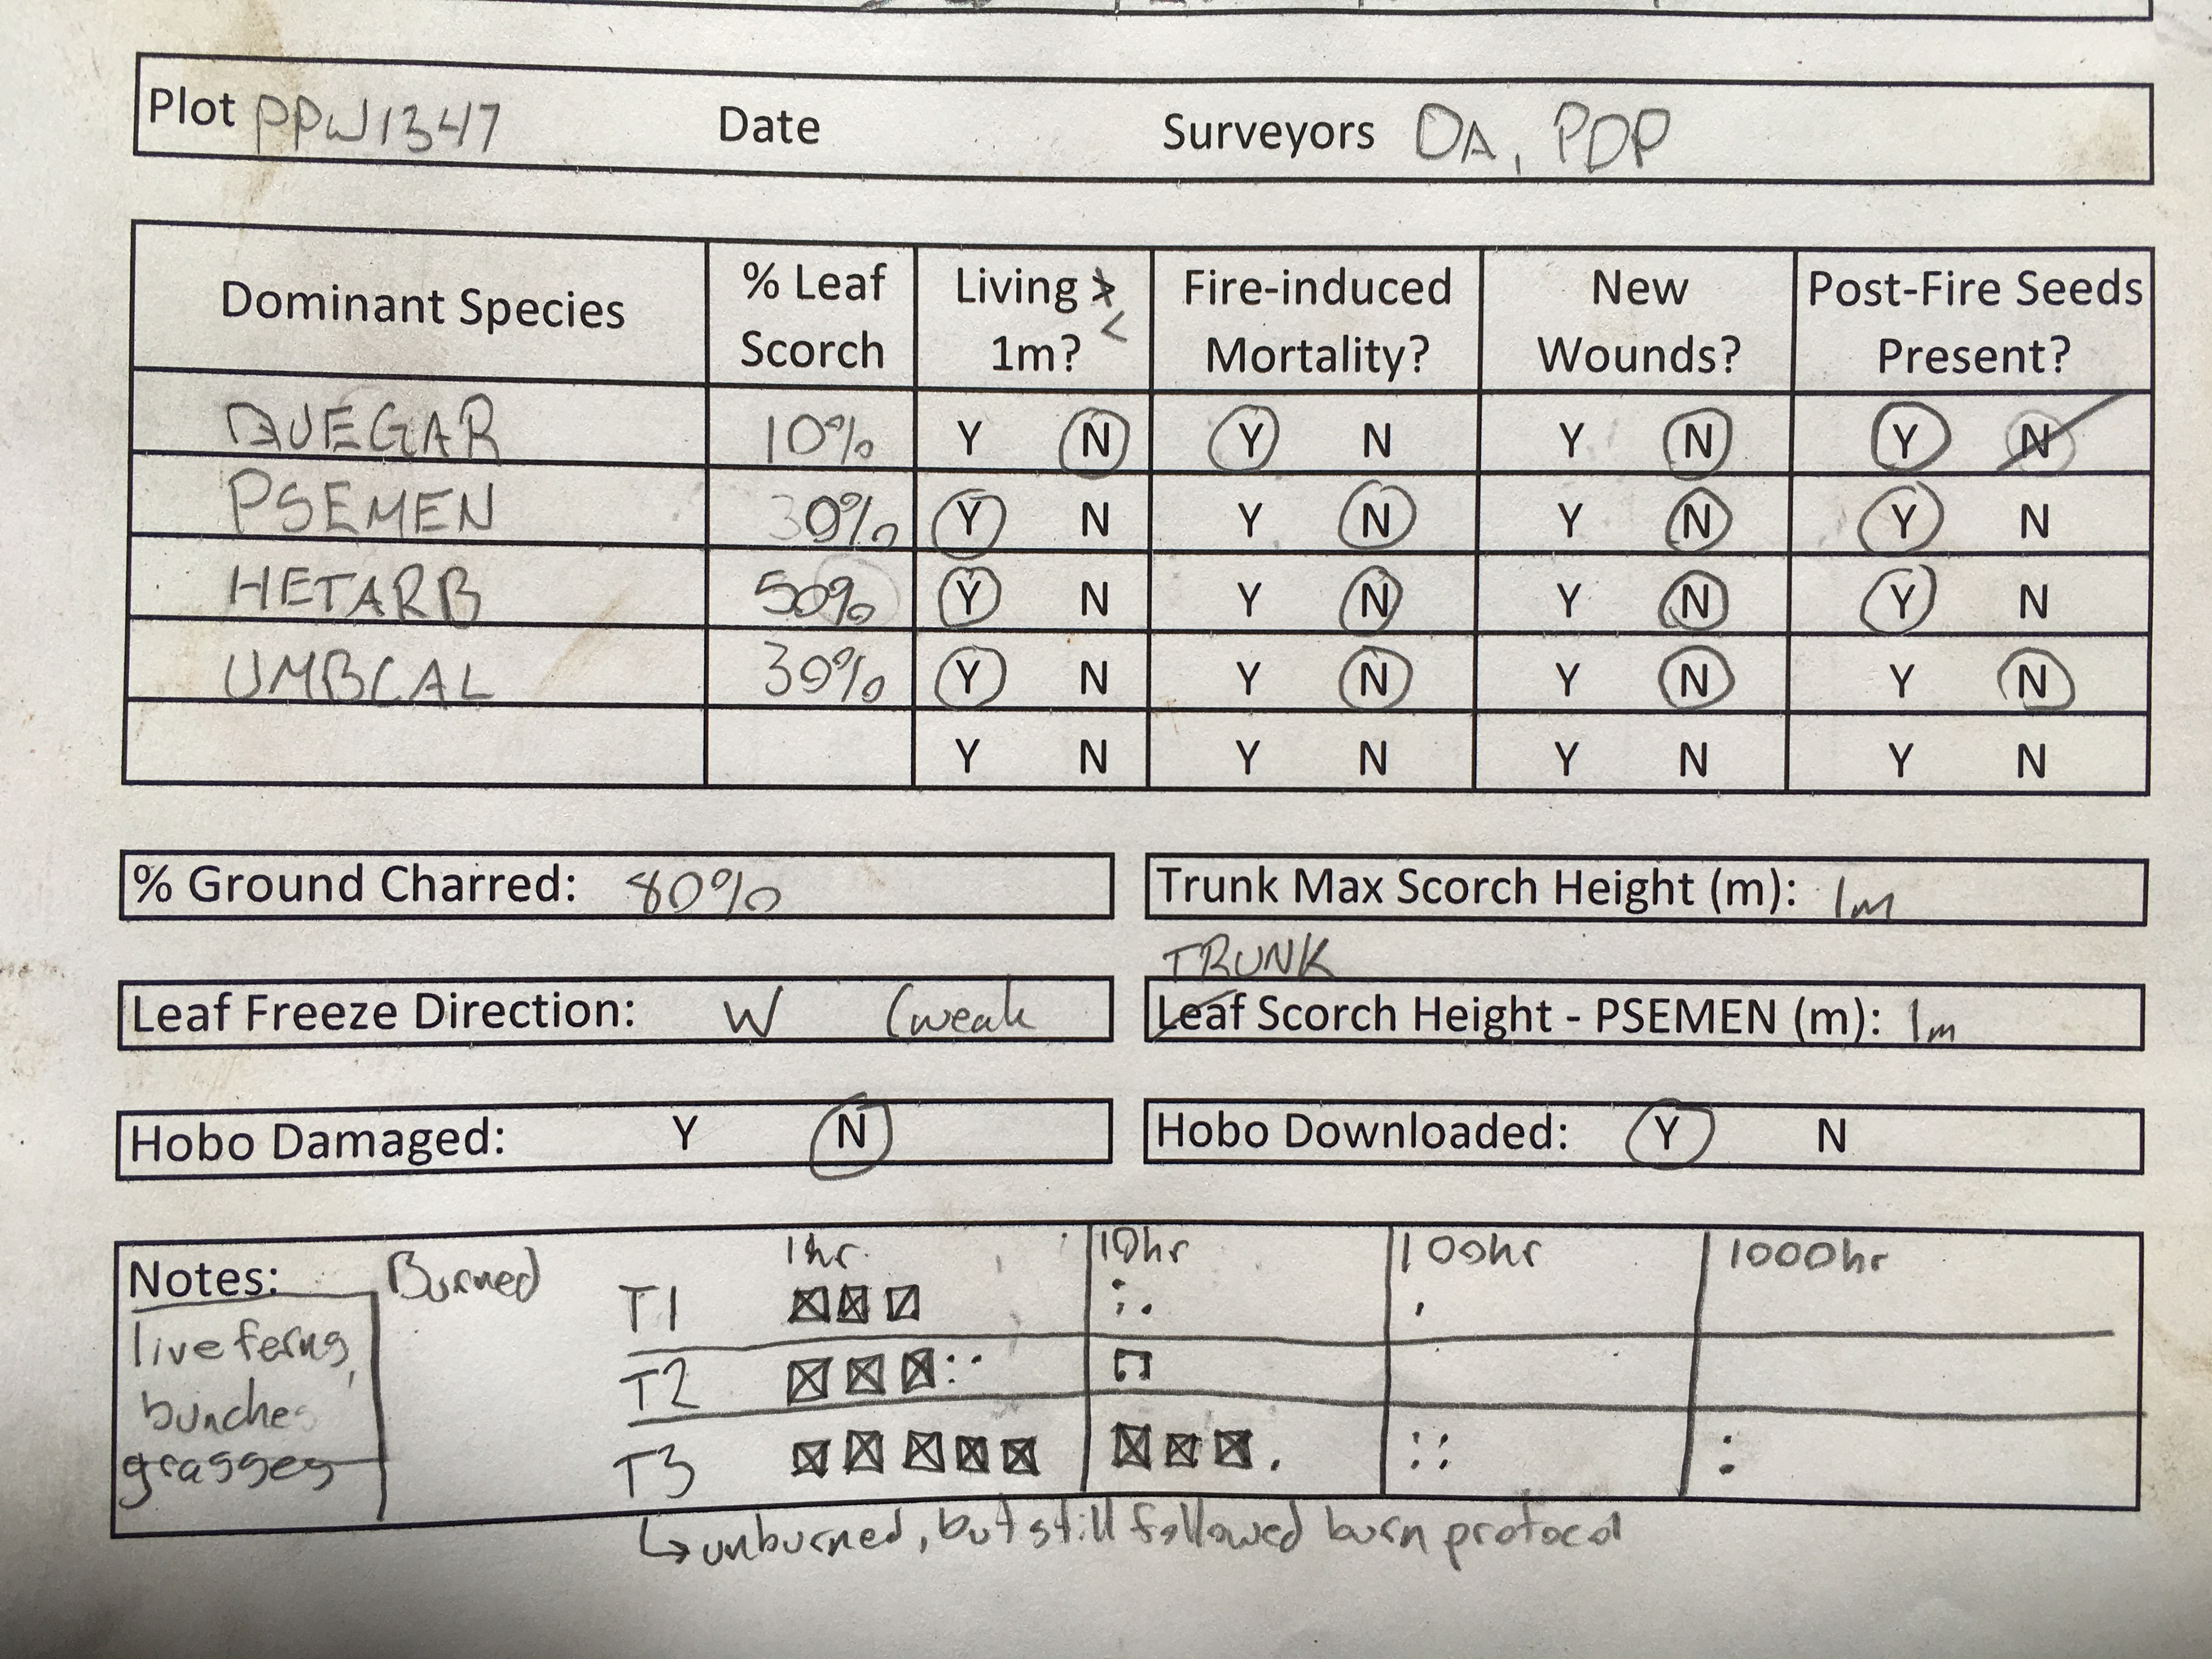 Plot PPW1347 Date Surveyors DA, PDP
Dominant Species % Leaf Scorch Living > < 1m? Fire-induced Mortality? New Wounds? Post-Fire Seeds Present?
QUEGAR 10% Y N Y N Y N Y N
PSEMEN 30% Y N Y N Y N Y N
HETARB 50% Y N Y N Y N Y N
UMBCAL 30% Y N Y N Y N Y N
Y N Y N Y N Y N
% Ground Charred: 80% Trunk Max Scorch Height (m): 1m
TRUNK
Leaf Freeze Direction: W (weak Leaf Scorch Height - PSEMEN (m): 1m
Hobo Damaged: Y N Hobo Downloaded: Y N
Notes: Burned 1hr 10hr 100hr 1000hr
live ferns, T1
bunches T2
grasses T3
↳ unburned, but still followed burn protocol